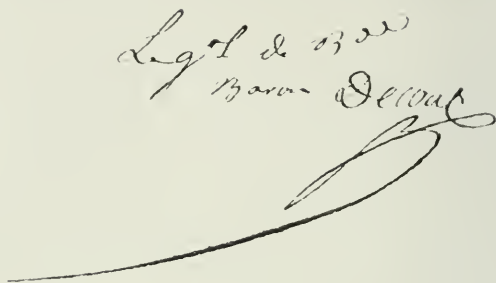 Le g^al de B^de
Baron Decouz